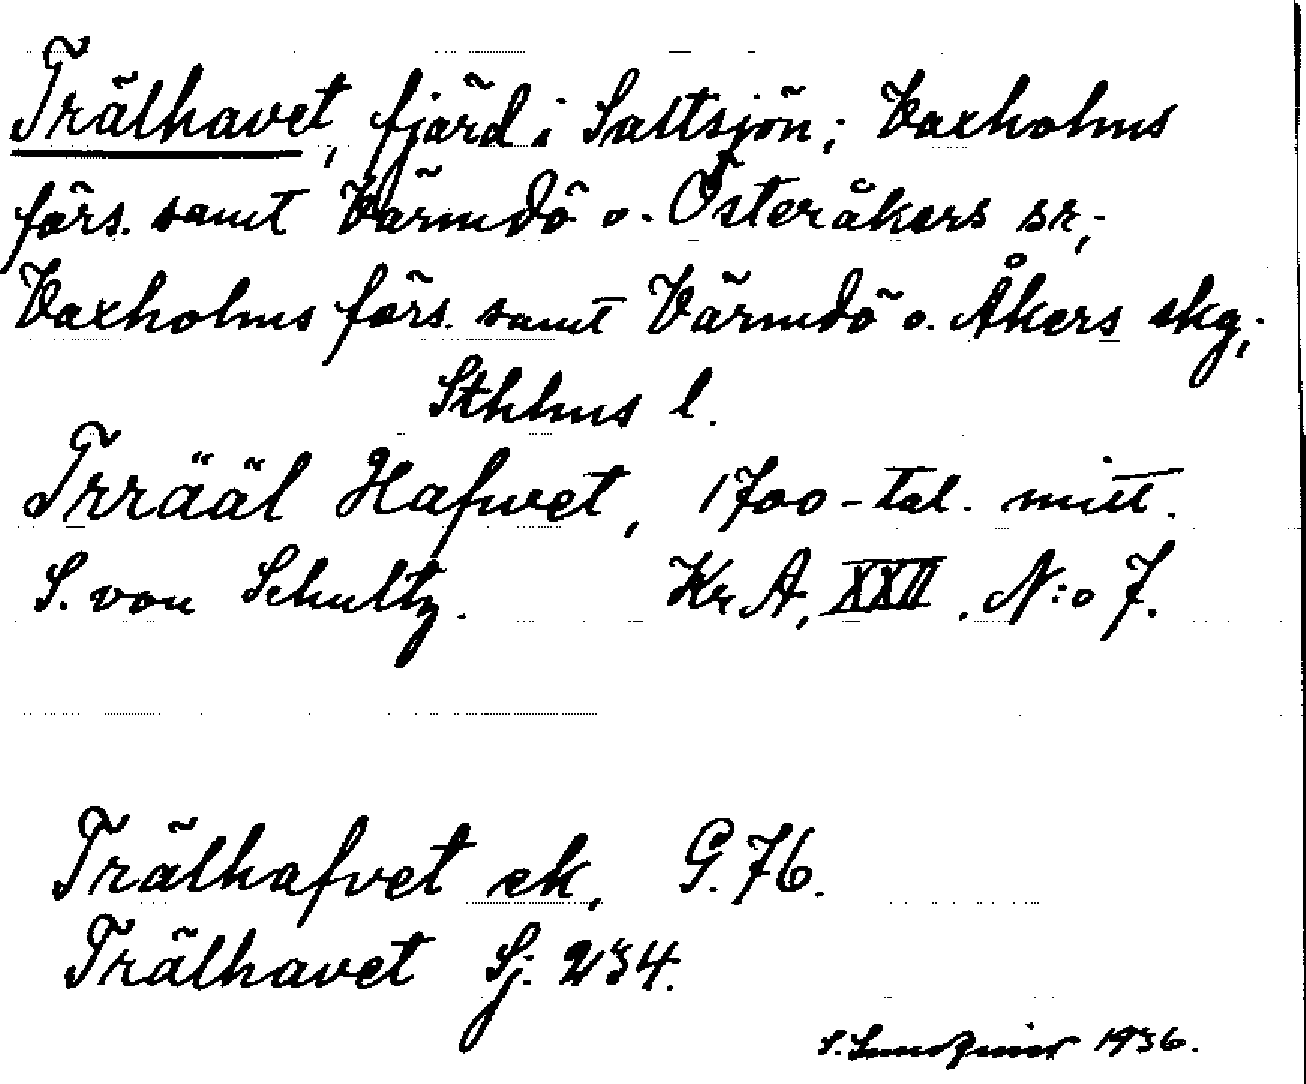 Trälhavet, fjärd i Saltsjön; Vaxholms
förs. samt Värmdö o. Österåkers sr,;
Vaxholms förs. samt Värmdö o. Åkers skg,;
Sthlms l.
Trrääl Hafwet, 1700-tal. mitt.
S. von Schultz. Kr A, XXII. N:o 7.
Trälhafvet ek, G. 76.
Trälhavet Sj. 234.
S. 1936.